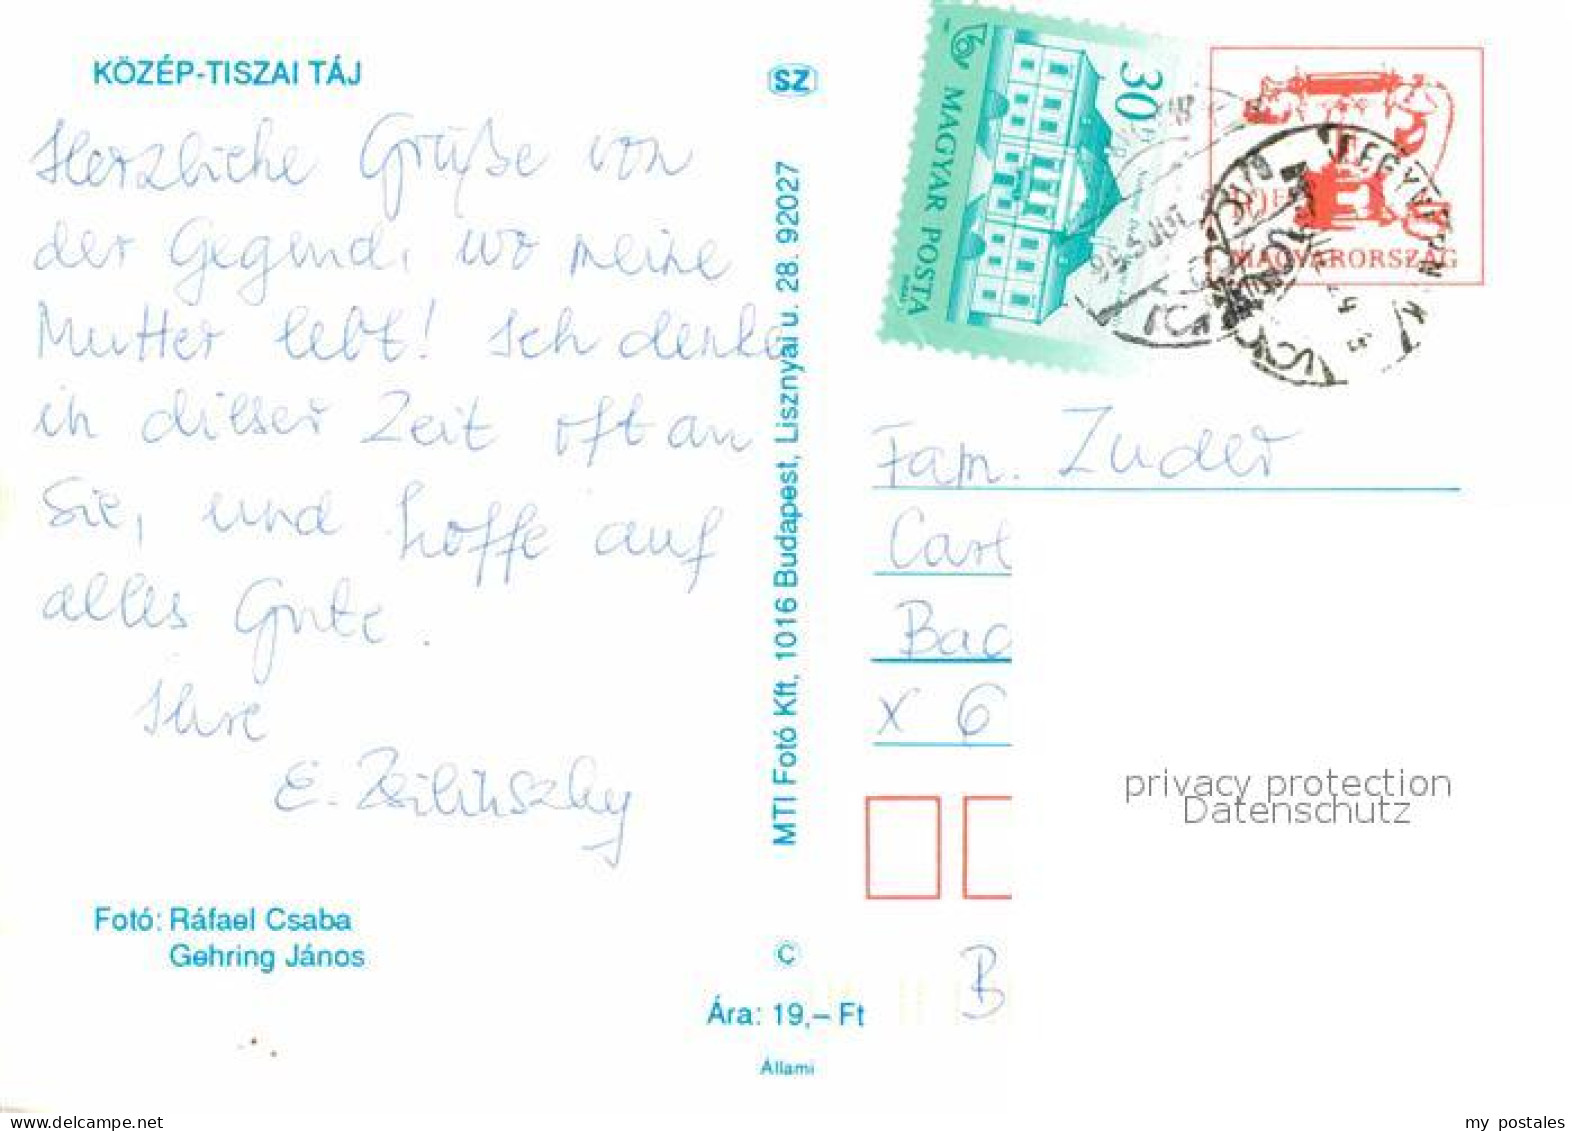 KÖZÉP-TISZAI TÁJ
Herzliche Grüße von
der Gegend, wo meine
Mutter lebt! Ich denke
in dieser Zeit oft an
Sie, und hoffe auf
alles Gute.
Ihre
E. Zsilinszky
Fotó: Ráfael Csaba
Gehring János
SZ
MTI Fotó Kft, 1016 Budapest, Lisznyai u. 28. 92027
C
Ára: 19,– Ft
Állami
30
MAGYAR POSTA
MAGYARORSZÁG
Fam. Zuder
Carl
Bac
x 6
B
privacy protection
Datenschutz
my postales